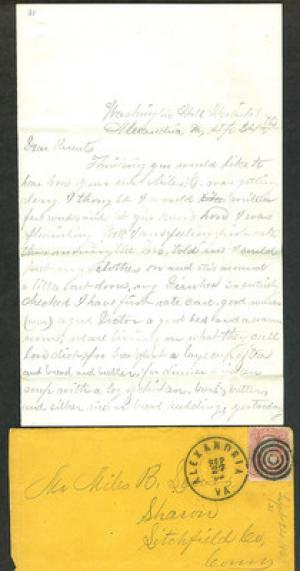 31
Washington Hall Hospital
Alexandria Va, Sept 24th /62
Dear Parents
Thinking you would like to
hear how your son Miles B. was getting
along I thought I would write a
few words and let you know how I was
I am feeling first rate
this morning the Doc, told me I could
put my clothes on and stir around
a little out doors, my Diarrhea is entirely
checked I have first rate care, good nurses
(men) a good Doctor a good bed and a warm
room, we are living on what they call
low diet, for breakfast a large cup of Tea
and bread and butter, for dinner a
soup with a leg of chicken, bread & butter
and either rice or bread pudding, yesterday
ALEXANDRIA
SEP
27
VA
Mr Miles B.
Sharon
Litchfield Co,
Conn